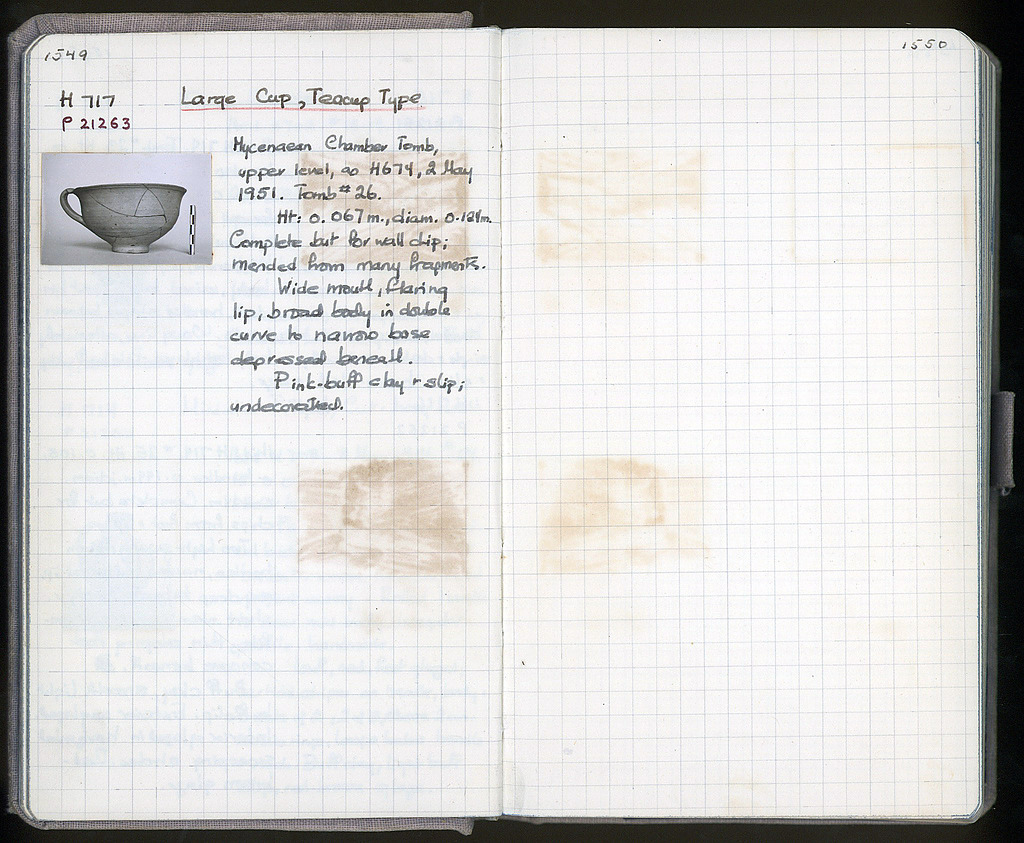 1549
1550
H 717 Large Cup, Teacup Type
P 21263
Mycenaean Chamber Tomb,
upper level, as H674, 2 May
1951. Tomb # 26.
Ht: 0.067 m., diam. 0.124m.
Complete but for wall chip;
mended from many fragments.
Wide mouth, flaring
lip, broad body in double
curve to narrow base
depressed beneath.
Pink-buff clay + slip;
undecorated.